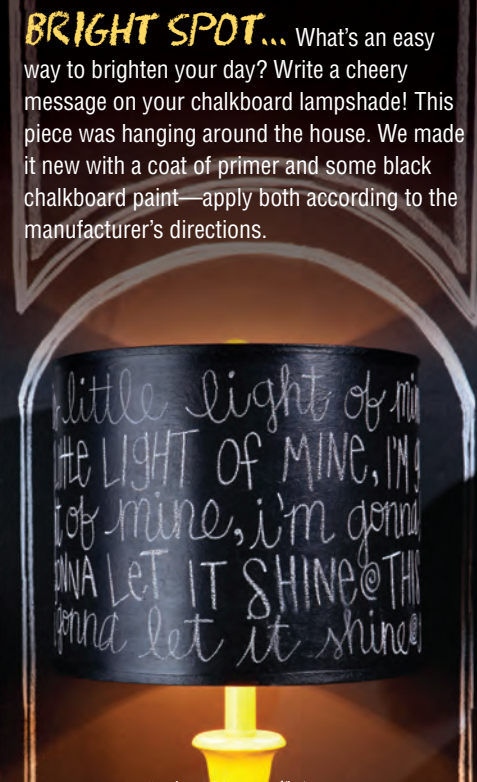 BRIGHT SPOT... What’s an easy
way to brighten your day? Write a cheery
message on your chalkboard lampshade! This
piece was hanging around the house. We made
it new with a coat of primer and some black
chalkboard paint—apply both according to the
manufacturer’s directions.
little light of
LIGHT OF MINE, I'M
of mine, i'm gonna
LET IT SHINE@THIS
gonna let it shine@